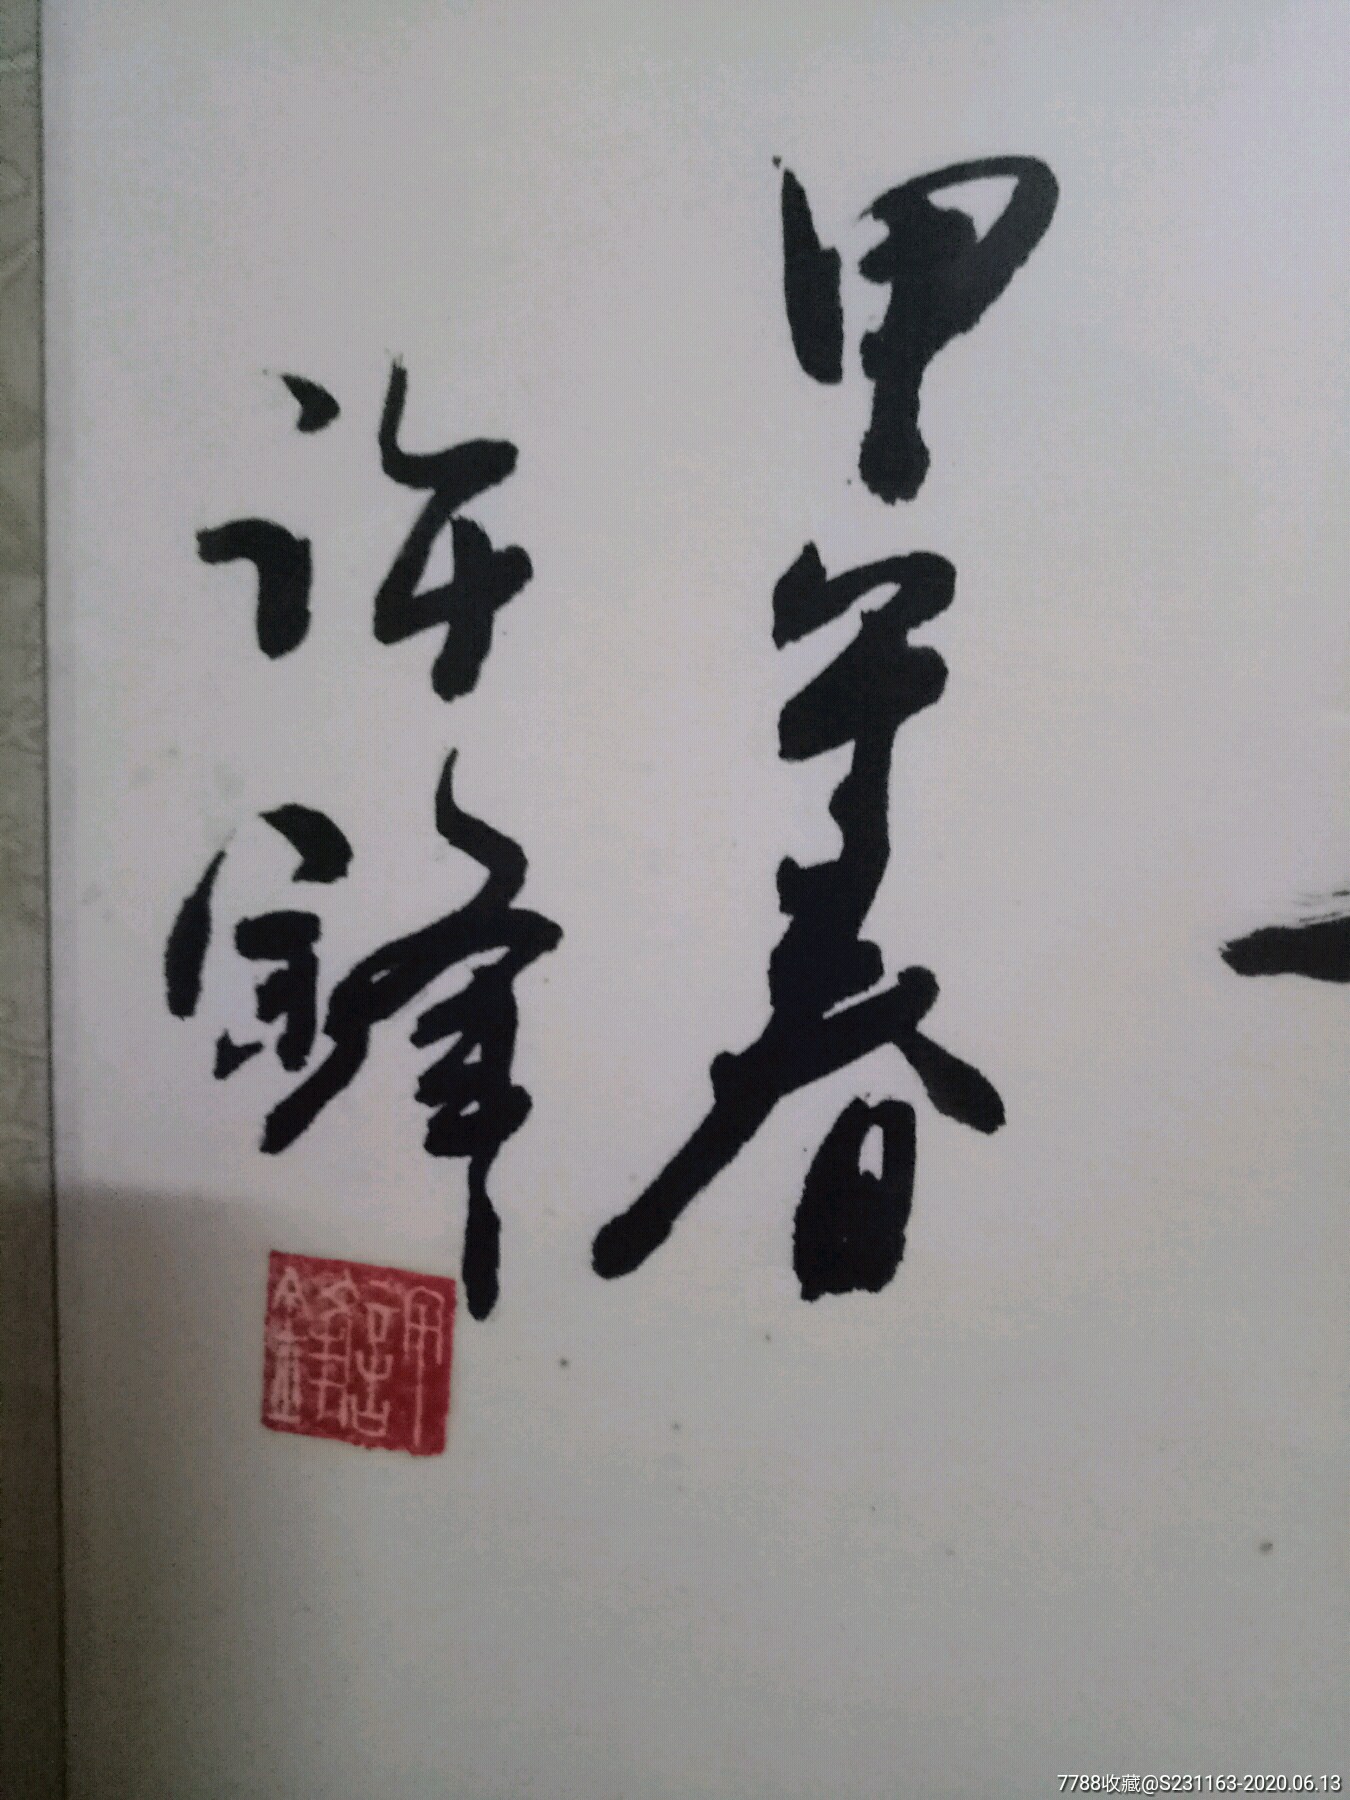 甲午春
许锋
7788收藏@S231163-2020.06.13